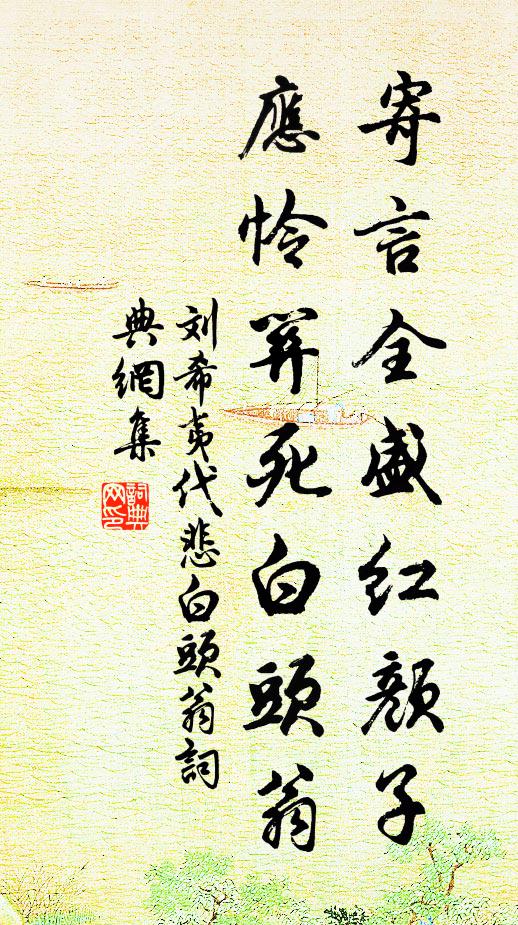 寄言全盛红颜子
應怜半死白頭翁
刘希夷代悲白頭翁詞
典網集
詞典網印